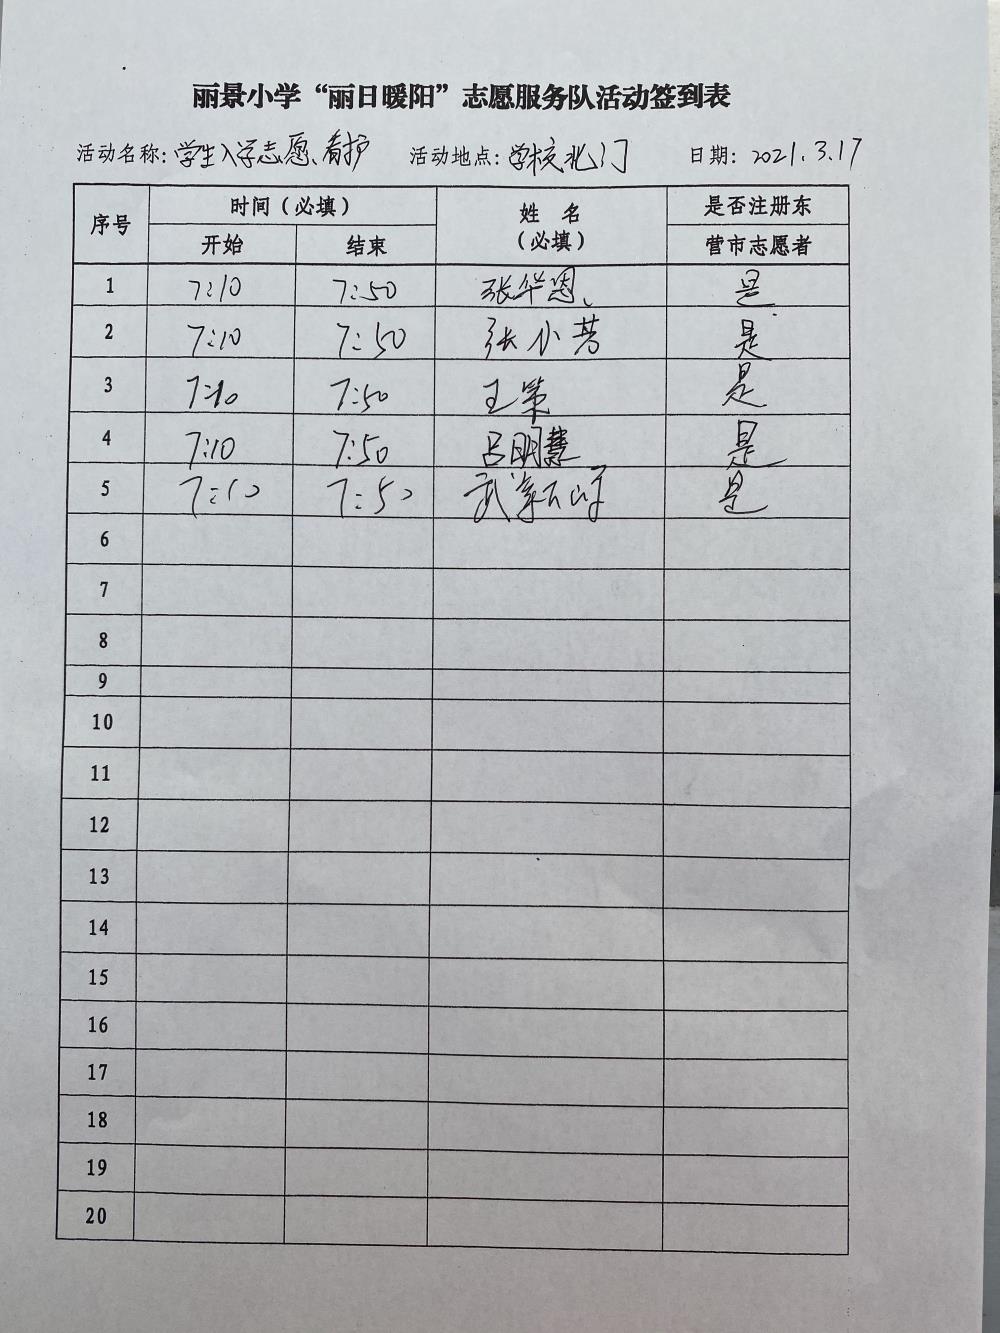 丽景小学“丽日暖阳”志愿服务队活动签到表
活动名称：学生入学志愿、看护 活动地点：学校北门 日期：2021.3.17
序号 时间（必填） 姓 名（必填） 是否注册东营市志愿者
开始 结束
1 7:10 7:50 张华恩、 是
2 7:10 7:50 张小芳 是
3 7:10 7:50 王策 是
4 7:10 7:50 吕明慧 是
5 7:10 7:50 武 是
6
7
8
9
10
11
12
13
14
15
16
17
18
19
20